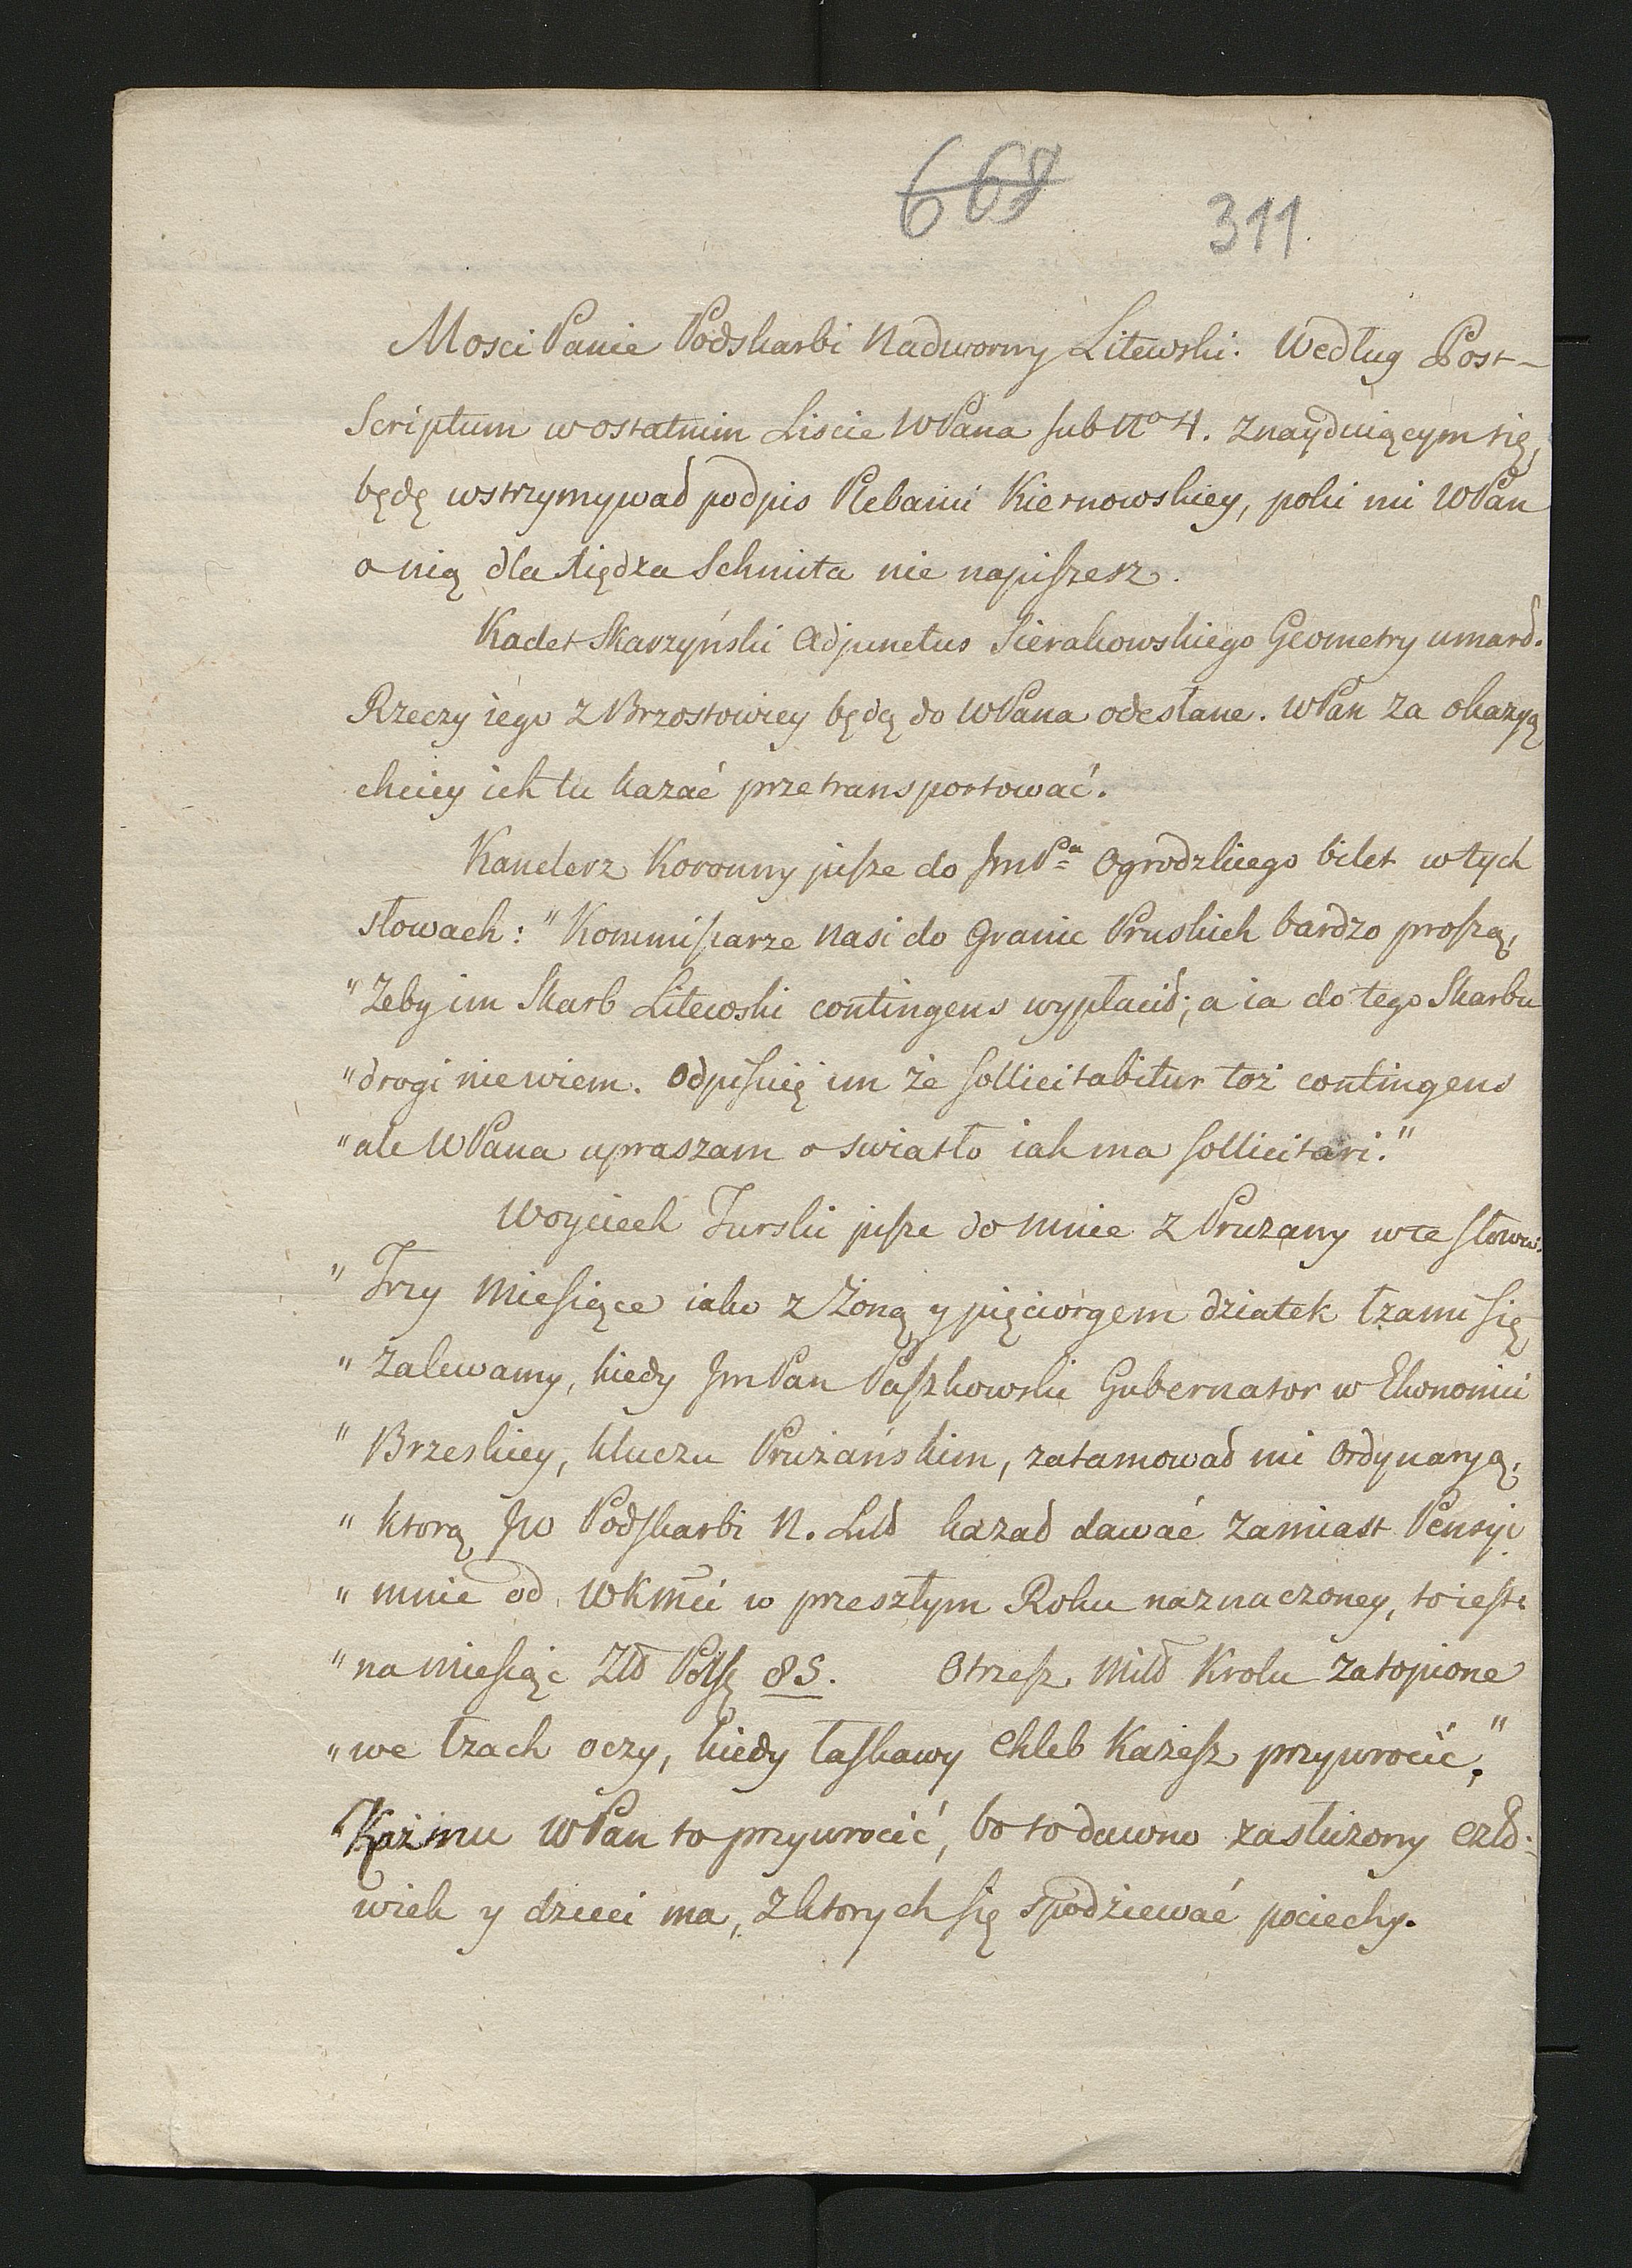 668
311.
Mosci Panie Podskarbi Nadworny Litewski. Według Post-
Scriptum w ostatnim Liscie WPana sub No 4. znayduiącym się,
będę wstrzymywał podpis Plebanii Kiernowskiey, poki mi WPan
o nią dla Xiędza Schmita nie napiszesz.
Kadet Skarzyński Adjunctus Sierakowskiego Geometry umarł.
Rzeczy iego z Brzostowicy będą do WPana odesłane. WPan za okazyą
chciey ich tu kazać przetransportować.
Kanclerz Koronny pisze do JmPa Ogrodzkiego bilet w tych
słowach: "Kommissarze nasi do Granic Pruskich bardzo proszą,
"Zeby im Skarb Litewski contingens wypłacił; a ia do tego Skarbu
"drogi nie wiem. Odpisuię im że sollicitabitur toż contingens
"ale WPana upraszam o swiatło iak ma sollicitari."
Woyciech Turski pisze do mnie z Pruzany w te słowa.
"Trzy Miesiące iako z Żoną y pięciorgem dziatek łzami się
"Zalewamy, kiedy JmPan Paszkowski Gubernator w Ekonomii
"Brzeskiey, Kluczu Prużańskim, zatamował mi Ordynaryą,
"ktorą JW Podskarbi N. Litt kazał dawać zamiast Pensyi
"mnie od WKMci w przeszłym Roku naznaczoney, to iest:
"na Miesiąc Złł Polsk 85. Otrzesz Mił Krolu zatopione
"we łzach oczy, kiedy łaskawy Chleb Każesz przywrocić,"
Każ mu WPan to przywrocić, bo to dawno zasłużony czło-
wiek y dzieci ma, z ktorych się spodziewać pociechy.